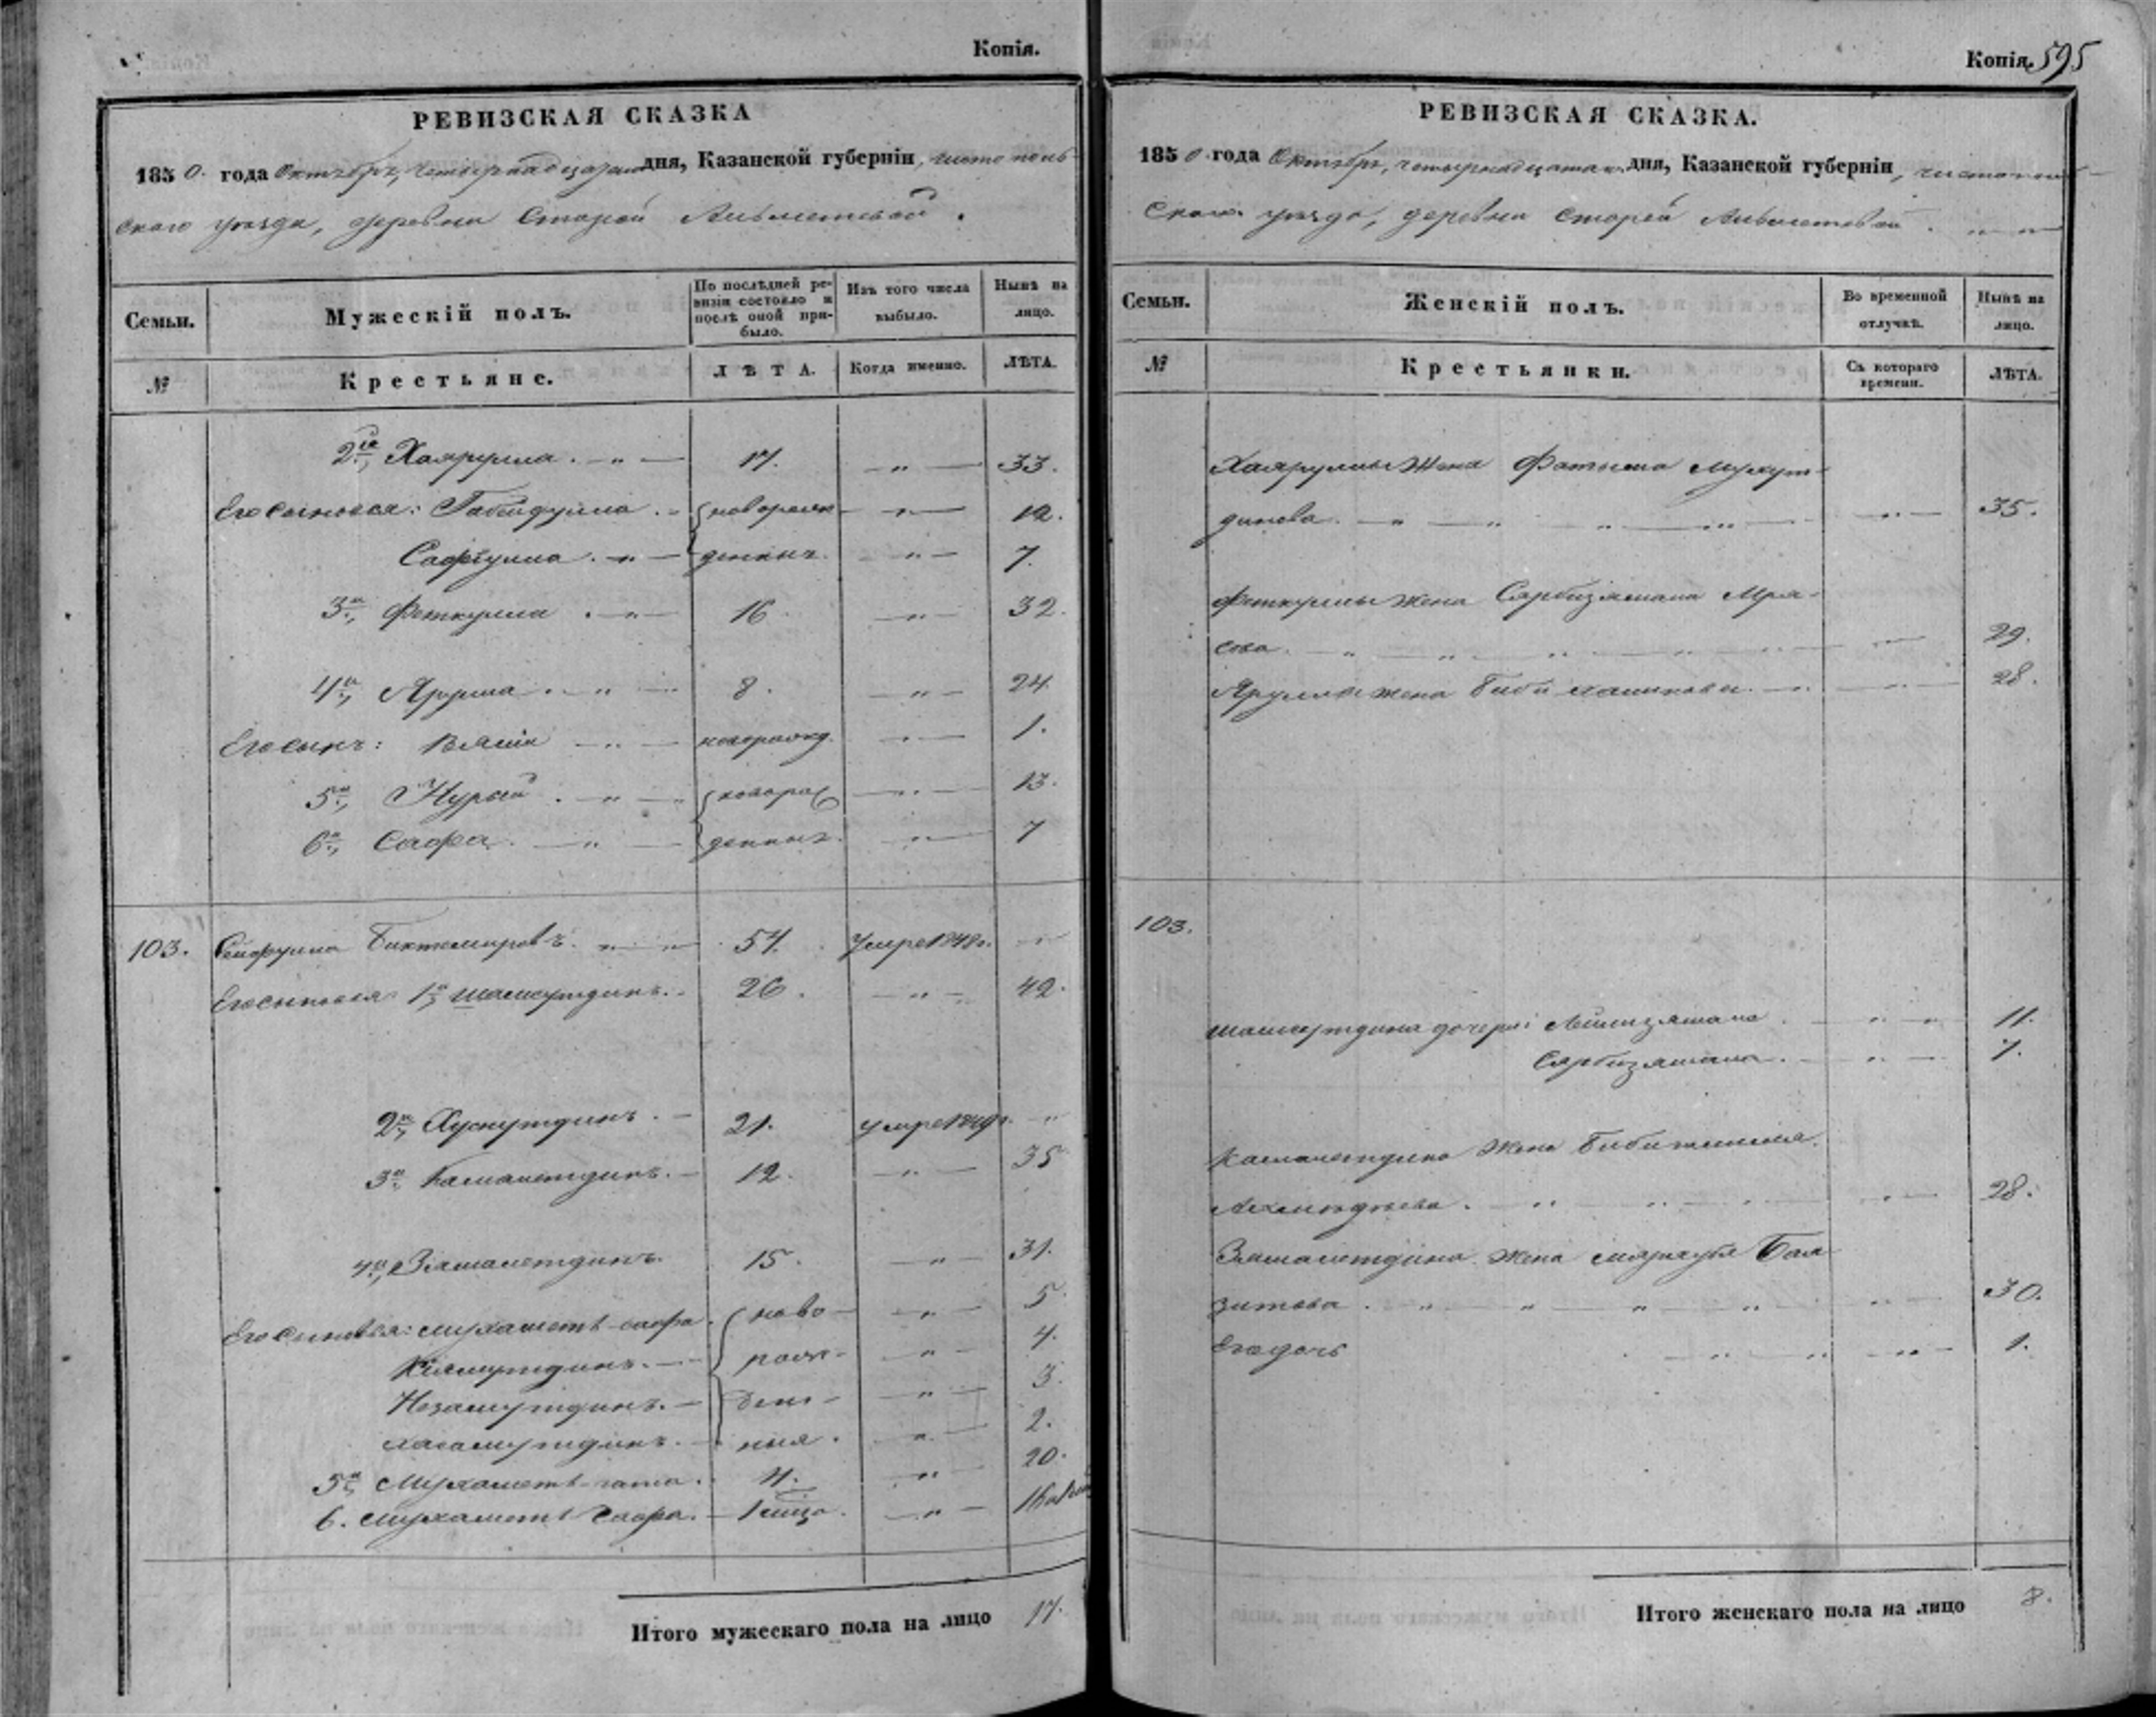 Копія.
РЕВИЗСКАЯ СКАЗКА
1850. года Октября, четырнадцатаго дня, Казанской губерніи, чистополь-
скаго уезда, деревни Старой Альметевой.
Семьи.
Мужескій полъ.
По послѣдней ре-
визіи состояло и
послѣ оной при-
было.
Изъ того числа
выбыло.
Нынѣ на
лицо.
№
Крестьяне.
ЛѢТА.
Когда именно.
ЛѢТА.
2й, Хаярулла . - „ - 17. - „ - 33.
Его сыновья: Габейдулла . - новорож - „ - 12.
Сафіулла . - „ - денны. - „ - 7.
3й, Феткулла . - „ - 16 - „ - 32.
4й, Ярулла . - „ - 8. - „ - 24.
Его сынъ: Вялій - „ - новорожд. - „ - 1.
5й, Нурый . - „ - новорож - „ - 13.
6й, Сафа . - „ - денны. - „ - 7
103. Сейфулла Биктемировъ. - „ - 54. умре 1848г. - „
Его сыновья: 1й, Шамсутдинъ. - 26. - „ - 42.
2й, Хуснутдинъ. - 21. умре 1849г. - „
3й, Камалетдинъ. - 12. - „ - 35
4й, Замалетдинъ. 15. - „ - 31.
Его сыновья: Мухаметь-сафа . ново - - „ - 5.
Кіямутдинъ. - рож- - „ - 4.
Незамутдинъ. - ден- - „ - 3.
ныя. - „ - 2.
5й, Мухаметь-гата . 4. - „ - 20.
6. Мухаметь Сафа. - - „ -
Итого мужескаго пола на лицо 17.
Копія. 595
РЕВИЗСКАЯ СКАЗКА.
1850 года Октября, четырнадцатаго дня, Казанской губерніи, чистополь-
скаго уезда, деревни Старой Альметевой.
Семьи.
Женскій полъ.
Во временной
отлучкѣ.
Нынѣ на
лицо.
№
Крестьянки.
Съ котораго
времени.
ЛѢТА.
Хаяруллы жена Фатыма
динова . - „ - 35.
Феткуллы жена Сарбизямала Мря-
сова . - „ - 29.
Яруллы жена Биби - „ - 28.
103.
Шамсутдина дочери: - „ - 11.
Сарбизямала . - „ - 7.
Камалетдина жена
- „ - 28.
Замалетдина жена Бая-
зитова . - „ - 30.
Его дочь . - „ - 1.
Итого женскаго пола на лицо 8.